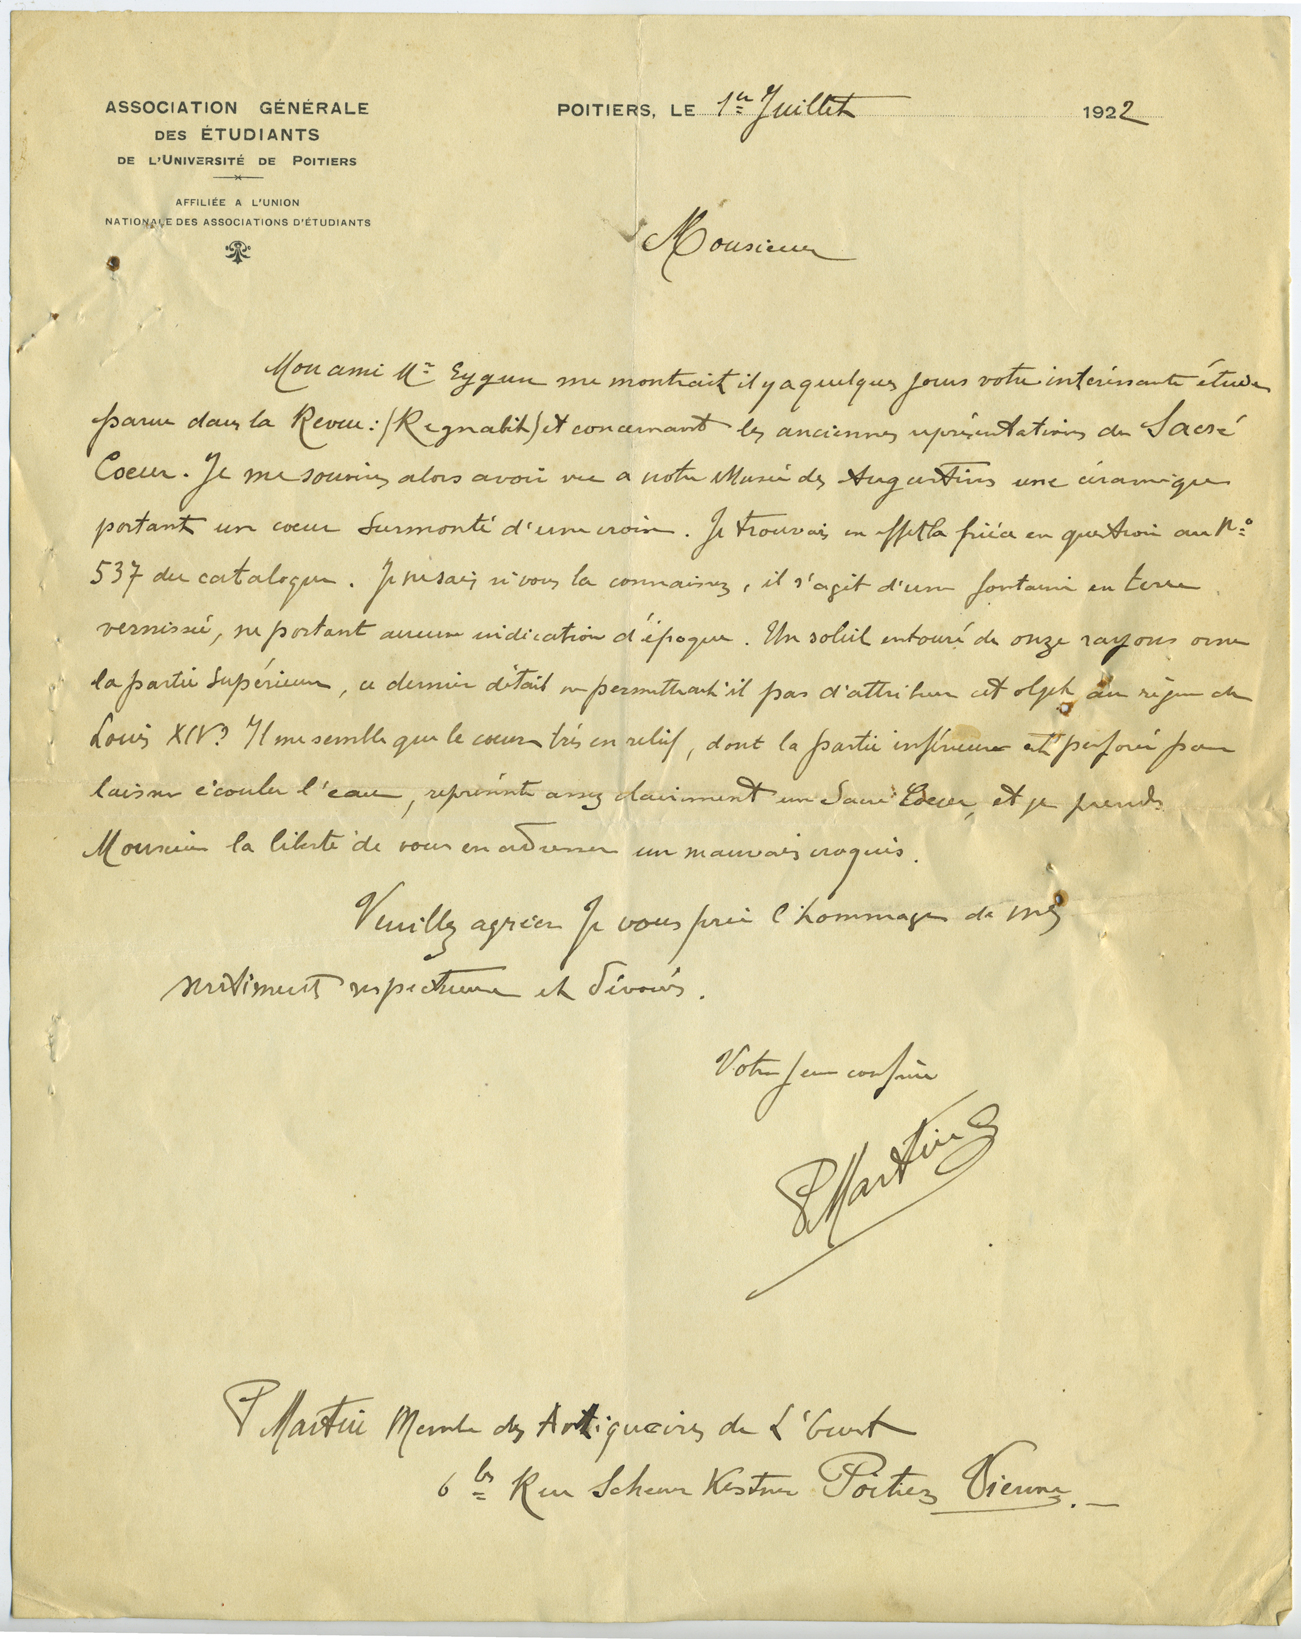 ASSOCIATION GÉNÉRALE
DES ÉTUDIANTS
DE L'UNIVERSITÉ DE POITIERS
AFFILIÉE A L'UNION
NATIONALE DES ASSOCIATIONS D'ÉTUDIANTS
POITIERS, LE 1er Juillet 1922
Monsieur
Mon ami Mr Eygun me montrait il y a quelques jours votre intéressante étude
parue dans la Revue : (Regnabit) et concernant les anciennes représentations du Sacré
Coeur. Je me souvins alors avoir vu a notre Musée des Augustins une céramique
portant un coeur surmonté d'une croix. Je trouvais en effet la pièce en question au No
537 du catalogue. Je ne sais si vous la connaissez, il s'agit d'une fontaine en terre
vernissée, ne portant aucune indication d'époque. Un soleil entouré de onze rayons orne
la partie supérieure, ce dernier détail ne permettrait'il pas d'attribuer cet objet au règne de
Louis XIV? Il me semble que le coeur très en relief, dont la partie inférieure est perforée pour
laisser écouler l'eau, représente assez clairement un Sacré Coeur, et je prends
Monsieur la liberté de vous en adresser un mauvais croquis.
Veuillez agréer je vous prie l'hommage de mes
sentiments respectueux et dévoués.
Votre jeune confrère
P Martin
P Martin Membre des Antiquaires de L'Ouest
6 bis Rue Scheurer Kestner Poitiers Vienne.